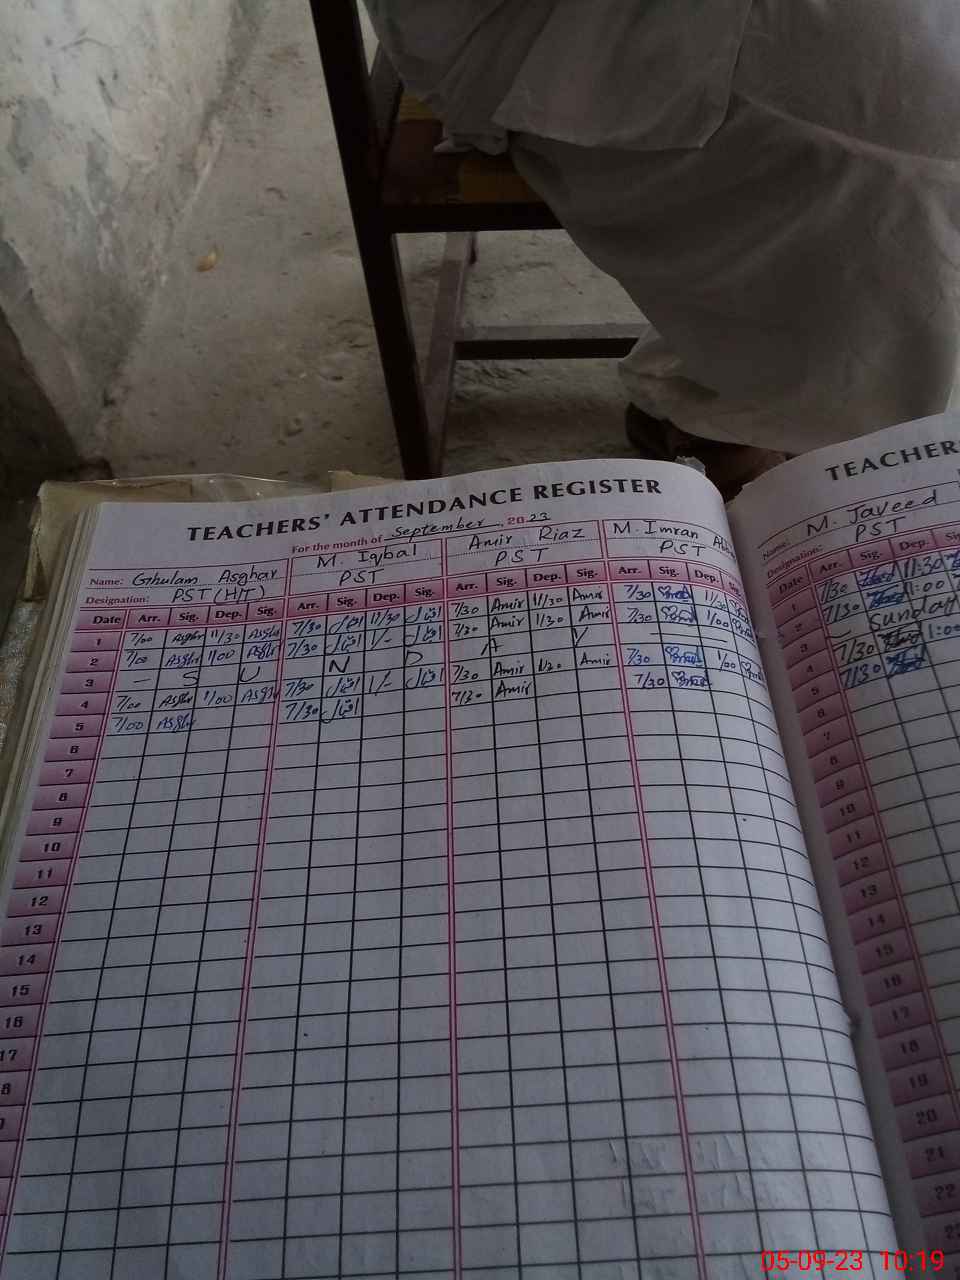 TEACHERS' ATTENDANCE REGISTER
For the month of September, 2023
Name: Ghulam Asghar M. Iqbal Amir Riaz M. Imran
Designation: PST (H/T) PST PST PST
Date Arr. Sig. Dep. Sig. Arr. Sig. Dep. Sig. Arr. Sig. Dep. Sig. Arr. Sig. Dep. Sig.
1 7/00 Asghr 11/30 Asghr 7/30 اقبال 11/30 اقبال 7/30 Amir 11/30 Amir 7/30 11/30
2 7/00 Asghr 1/00 Asghr 7/30 اقبال 1/- اقبال 7/30 Amir 1/30 Amir 7/30 1/00
3 — S U N D A Y
4 7/00 Asghr 1/00 Asghr 7/30 اقبال 1/- اقبال 7/30 Amir 1/30 Amir 7/30 1/00
5 7/00 Asghr 7/30 اقبال 7/30 Amir 7/30
6
7
8
9
10
11
12
13
14
15
16
17
8
TEACHER
Name: M. Javeed
Designation: PST
Date Arr. Sig. Dep. Si
1 7/30 11:30
2 7/30 1:00
3 Sunday
4 7/30 1:00
5 7/30
6
7
8
9
10
11
12
13
14
15
16
17
18
19
20
21
22
23
05-09-23 10:19